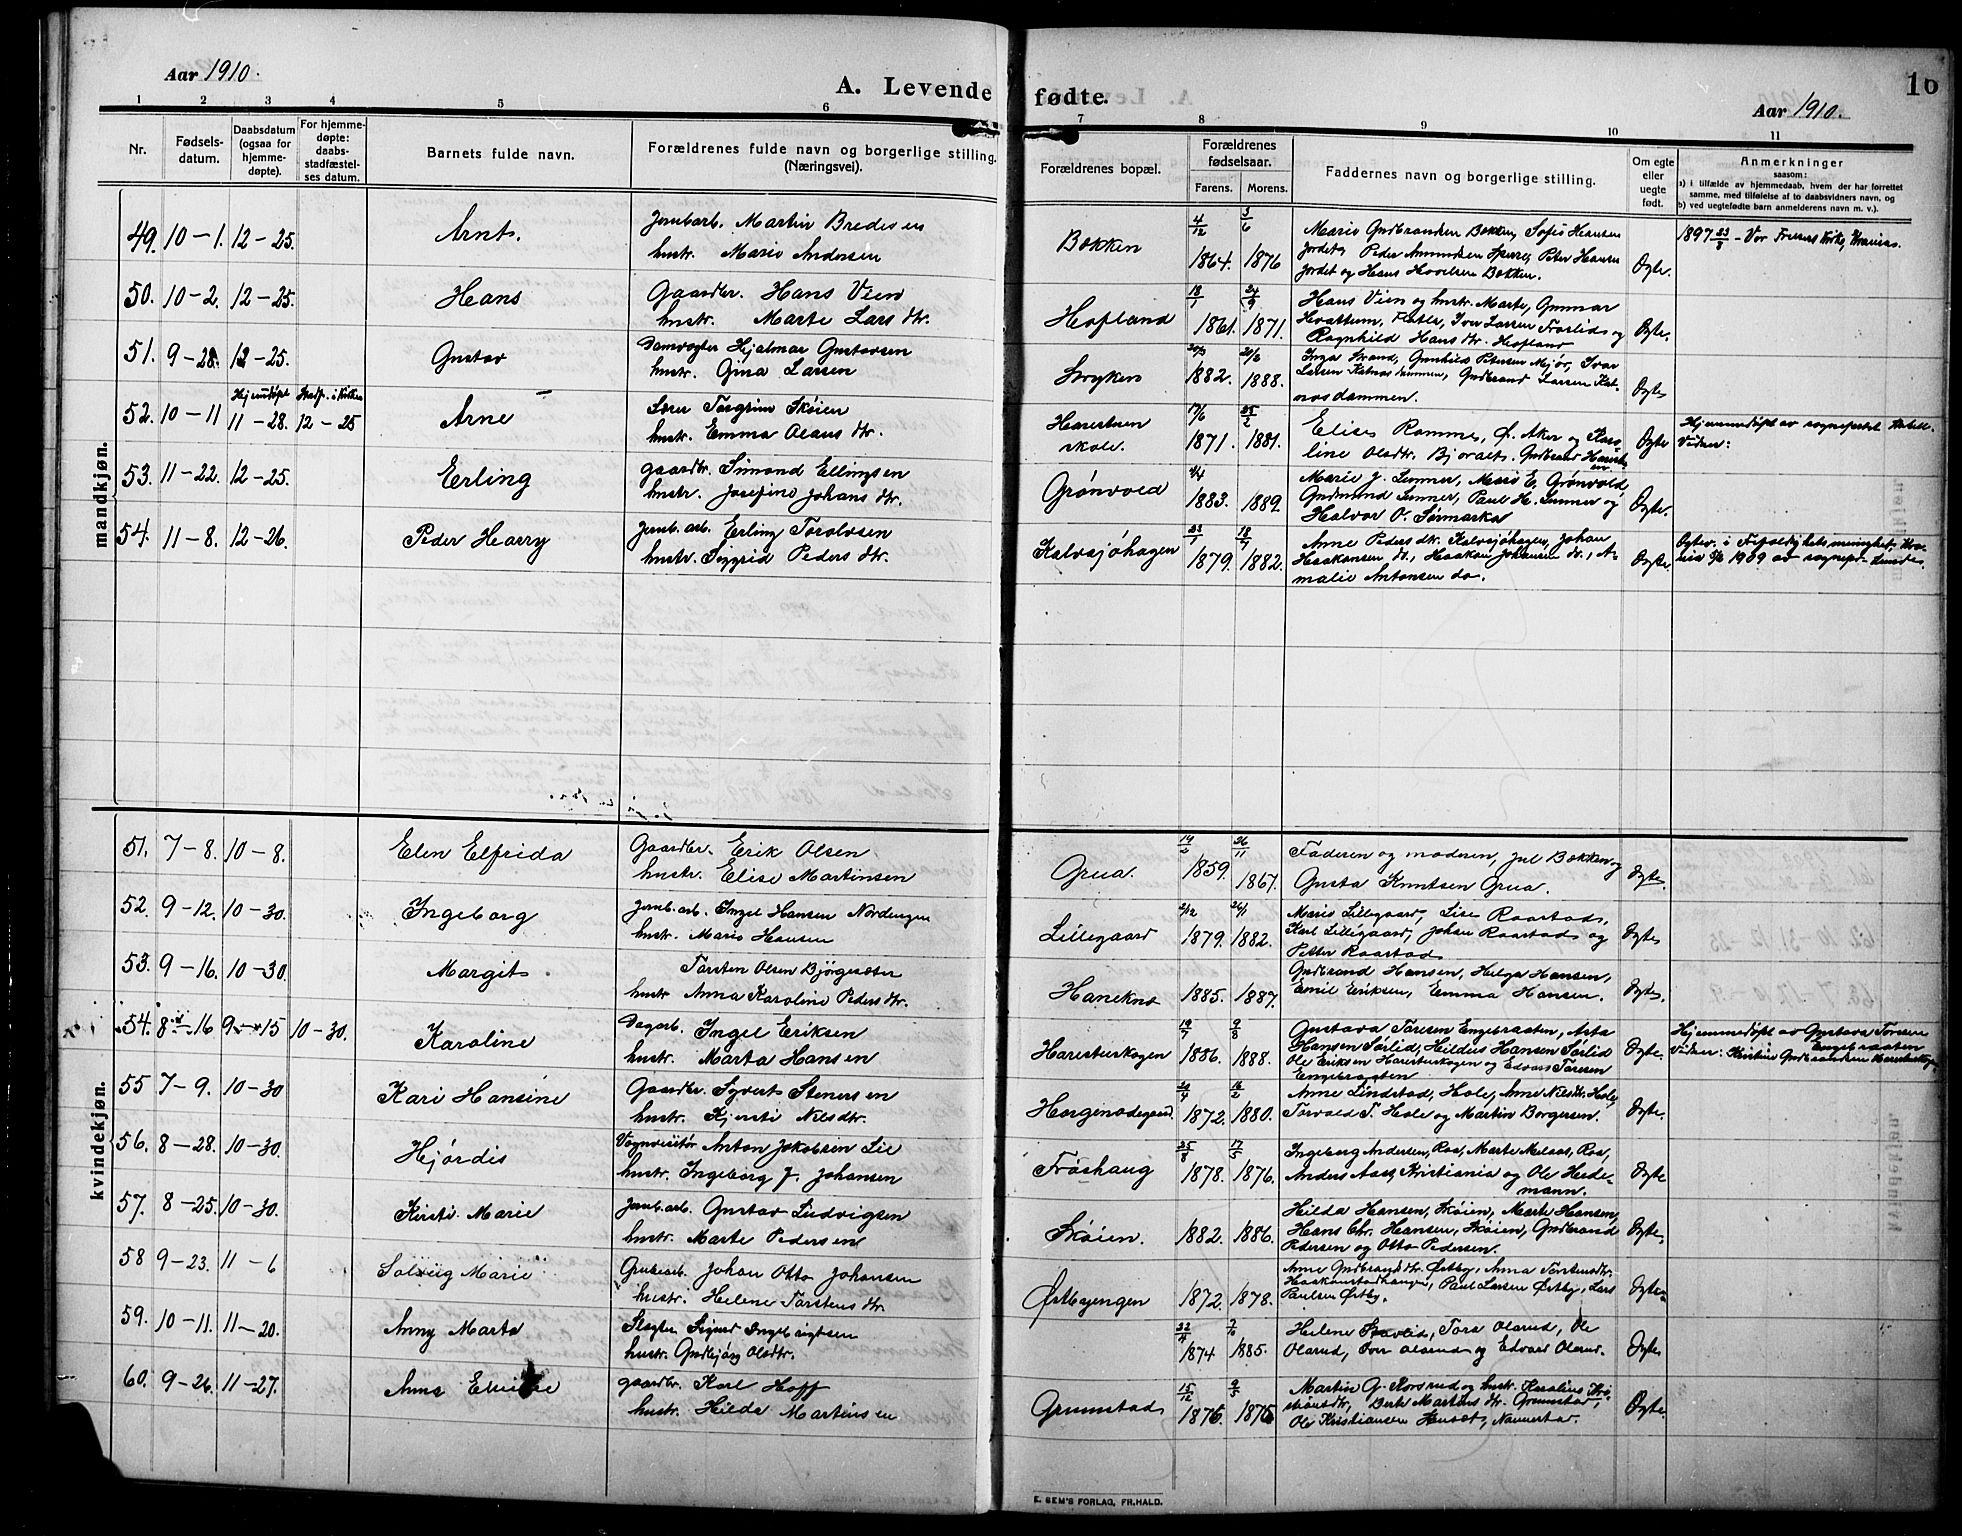 Aar 1910.
A. Levende fødte.
16
Aar 1910.
1 2 3 4 5 6 7 8 9 10 11
Nr.
Fødsels-
datum.
Daabsdatum
(ogsaa for
hjemme-
døpte).
For hjemme-
døpte:
daabs-
stadfæstel-
ses datum.
Barnets fulde navn.
Forældrenes fulde navn og borgerlige stilling.
(Næringsvei).
Forældrenes bopæl.
Forældrenes
fødselsaar.
Farens. Morens.
Faddernes navn og borgerlige stilling.
Om egte
eller
uegte
født.
Anmerkninger
saasom:
a) i tilfælde av hjemmedaab, hvem der har forrettet
samme, med tilføielse af to daabsvidners navn, og
b) ved uegtefødte barn anmelderens navn m. v.).
mandkjøn.
49. 10-1. 12-25. Arnt. Jernb.arb. Martin Bredesen
hustr. Marie Andersen
Bækken 4/12 1864. 3/6 1876
Marie Gudbrandsen Bækken, Sofie Hansen
Jordet, Peder Amundsen Sperre, Peter Hansen
Jordet og Hans Hovelsen Bækken.
Egte.
1897 23/8 - Vor Frelsers Kirke, Kra.
50. 10-2. 12-25. Hans Gaardbr. Hans Vien
hustr. Marte Larsdtr.
Hofland 18/1 1861. 24/9 1871.
Hans Vien og hustr. Marte, Gunnar
Hvattum, Iver Larsen Forlid og
Ragnhild Hansdtr. Hofland
Egte.
51. 9-28. 12-25. Gustav Damvogter Hjalmar Gustavsen
hustr. Gina Larsen
Stryken 1882. 1888.
Inga Strand, Gunhild Petersen Mjør, Ivar
Larsen Katnosdammen, Gudbrand Larsen Kat-
nosdammen.
Egte
52. 10-11 Hjemmedøpt 11-28. Stadf. i Kirken 12-25 Arne Lærer Torgrim Skøien
hustr. Emma Olausdtr.
Harestuen
skole. 17/6 1871. 25/2 1881.
Elise Ramme, Ø. Aker og Karo-
line Olsdtr. Bjoralt. Gudbrand Harestu-
en
Egte
Hjemmedøpt av sogneprest
Vidner:
53. 11-22. 12-25. Erling gaardbr. Simond Ellingsen
hustr. Josefine Johansdtr.
Grønvold 1883. 1889.
Marie J. Lunner, Marie E. Grønvold,
Gudmund Lunner, Paul H. Lunner og
Halvor O. Sørmarka
Egte.
54. 11-8. 12-26. Peder Harry Jernb.arb. Erling Torolvsen
hustr. Sigrid Pedersdtr.
Kalvsjøhagen 23/1 1879. 18/7 1882.
Anne Pedersdtr. Kalvsjøhagen, Johan
Haakonsen do., Haakon Johansen do., A-
malie Antonsen do.
Egte.
kvindekjøn.
51. 7-8. 10-8. Elen Elfrida Gaardbr. Erik Olsen
hustr. Elise Martinsen
Grua. 19/2 1859. 26/11 1867.
Faderen og moderen, Jul Bækken og
Gusta Knutsen Grua.
Egte.
52. 9-12. 10-30. Ingeborg Jernb.arb. Ingel Hansen Nordengen
hustr. Marie Hansen
Lillegaard 2/12 1879. 26/1 1882.
Marie Lillegaard, Lise Raastad,
Karl Lillegaard, Johan Raastad og
Petter Raastad
Egte
53. 9-16. 10-30. Margit Torsten Olsen Bjørgesæter
hustr Anna Karoline Pedersdtr.
Haneknæ 1885. 1887.
Gudbrand Hansen, Helga Hansen,
Emil Eriksen, Emma Hansen.
Egte.
54. 8-16 9-15 10-30. Karoline Dagarb. Ingel Eriksen
hustr. Marta Hansen
Harestuskogen 19/7 1886. 9/8 1888.
Gustava Toresen Engebraaten, Asta
Hansen Sørlid, Hildus Hansen Sørlid
Ole Eriksen Harestuskogen og Edvart Toresen
Engebraaten
Egte.
Hjemmedøpt av Gustava Toresen
Engebraaten
Vidner: Kristine Gudbrandsen Harestuskogen
55 7-9. 10-30 Kari Hansine Gaardbr. Syvert Stenersen
hustr. Kjersti Nilsdtr.
Horginodegaard. 29/4 1872. 16/2 1880.
Anne Lindstad, Hole, Anne Nilsdtr. Hole,
Torvald T. Hole og Martin Borgersen.
Egte.
56. 8-28. 10-30. Hjørdis Vognvisitør Anton Jakobsen Lie
hustr. Ingeborg J. Johansen
Frøshaug 25/8 1878. 17/5 1876.
Ingeborg Andersen, Roa, Marte Melaas, Roa,
Anders Aas, Kristiania og Ole Hede-
mann.
Egte
57. 8-25. 10-30. Kirsti Marie Jernb.arb. Gustav Ludvigsen
hustr. Marte Pedersen
Skøien. 1882. 1886.
Hilda Hansen, Skøien, Marte Hansen,
Hans Chr. Hansen, Skøien, Gudbrand
Pedersen og Otto Pedersen.
Egte.
58 9-23. 11-6 Solveig Marie Grubearb. Johan Otto Johansen
hustr. Helene Torstensdtr
Østbyengen 1872. 1878.
Anne Gudbrandsdtr. Østby, Anna Torstensdtr.
Haakonstadhaugen, Paul Larsen Østby, Lars
Paulsen Østby.
Egte.
59. 10-11. 11-20. Anny Marta Slagter Sigurd Ingebrigtsen
hustr. Gudbjørg Olsdtr.
22/4 1874 7/6 1885.
Helene Stavlid, Tora Olerud, Ole
Olerud, Iver Olerud og Edvart Olerud.
Egte.
60. 9-26. 11-27. Anna gaardbr. Karl Hoff
hustr. Hilda Martinsen
Grumstad 15/12 1876. 9/5 1875
Martin G. Korsrud og hustr. Karoline Kri-
stiansdtr., Berte Martinsdtr. Grumstad,
Ole Kristiansen, Nannestad.
Egte.
E. SEM'S FORLAG, FR.HALD.